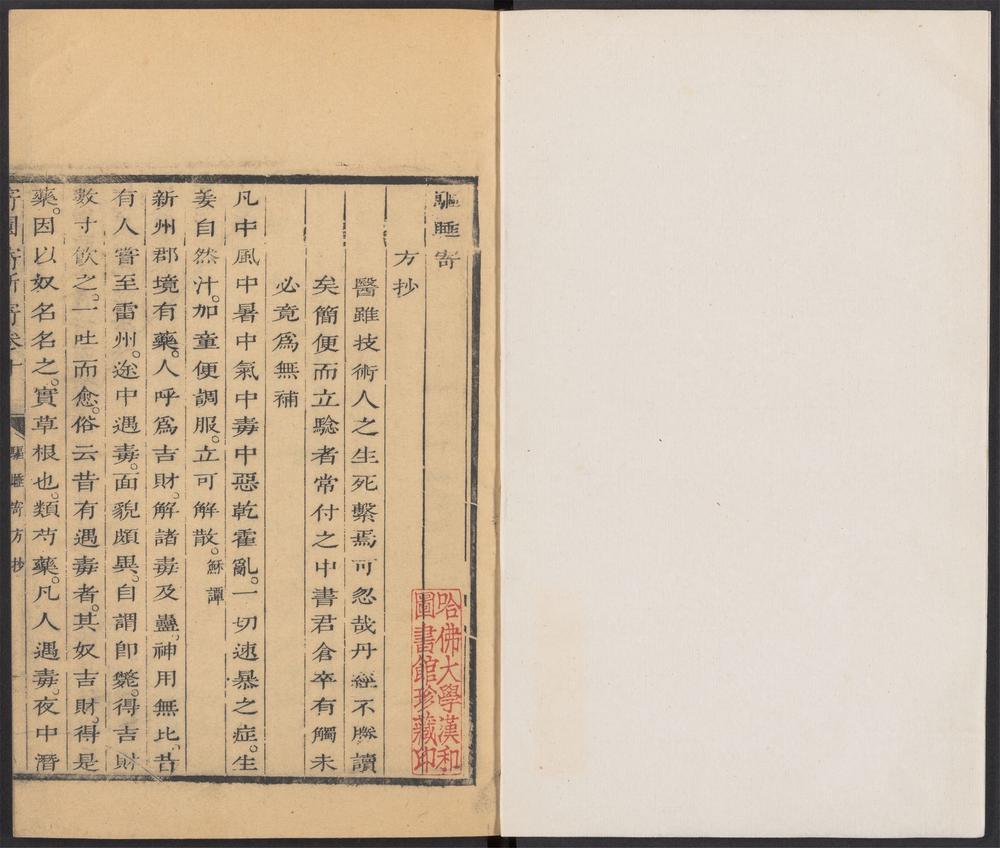 驅睡寄
方抄
醫雖技術人之生死繫焉可忽哉丹經不勝讀
矣簡便而立騐者常付之中書君倉卒有觸未
必竟爲無補
凡中風中暑中氣中毒中惡乾霍亂。一切速暴之症。生
姜自然汁。加童便調服。立可解散。穌譚
新州郡境有藥。人呼爲吉財。解諸毒及蠱。神用無比。昔
有人嘗至雷州。途中遇毒。面貌頗異。自謂卽斃。得吉財
數寸飲之。一吐而愈。俗云昔有遇毒者。其奴吉財。得是
藥。因以奴名名之。實草根也。類芍藥。凡人遇毒。夜中潛
寄園寄所寄卷十 驅睡寄方抄
哈佛大學漢和
圖書館珍藏印